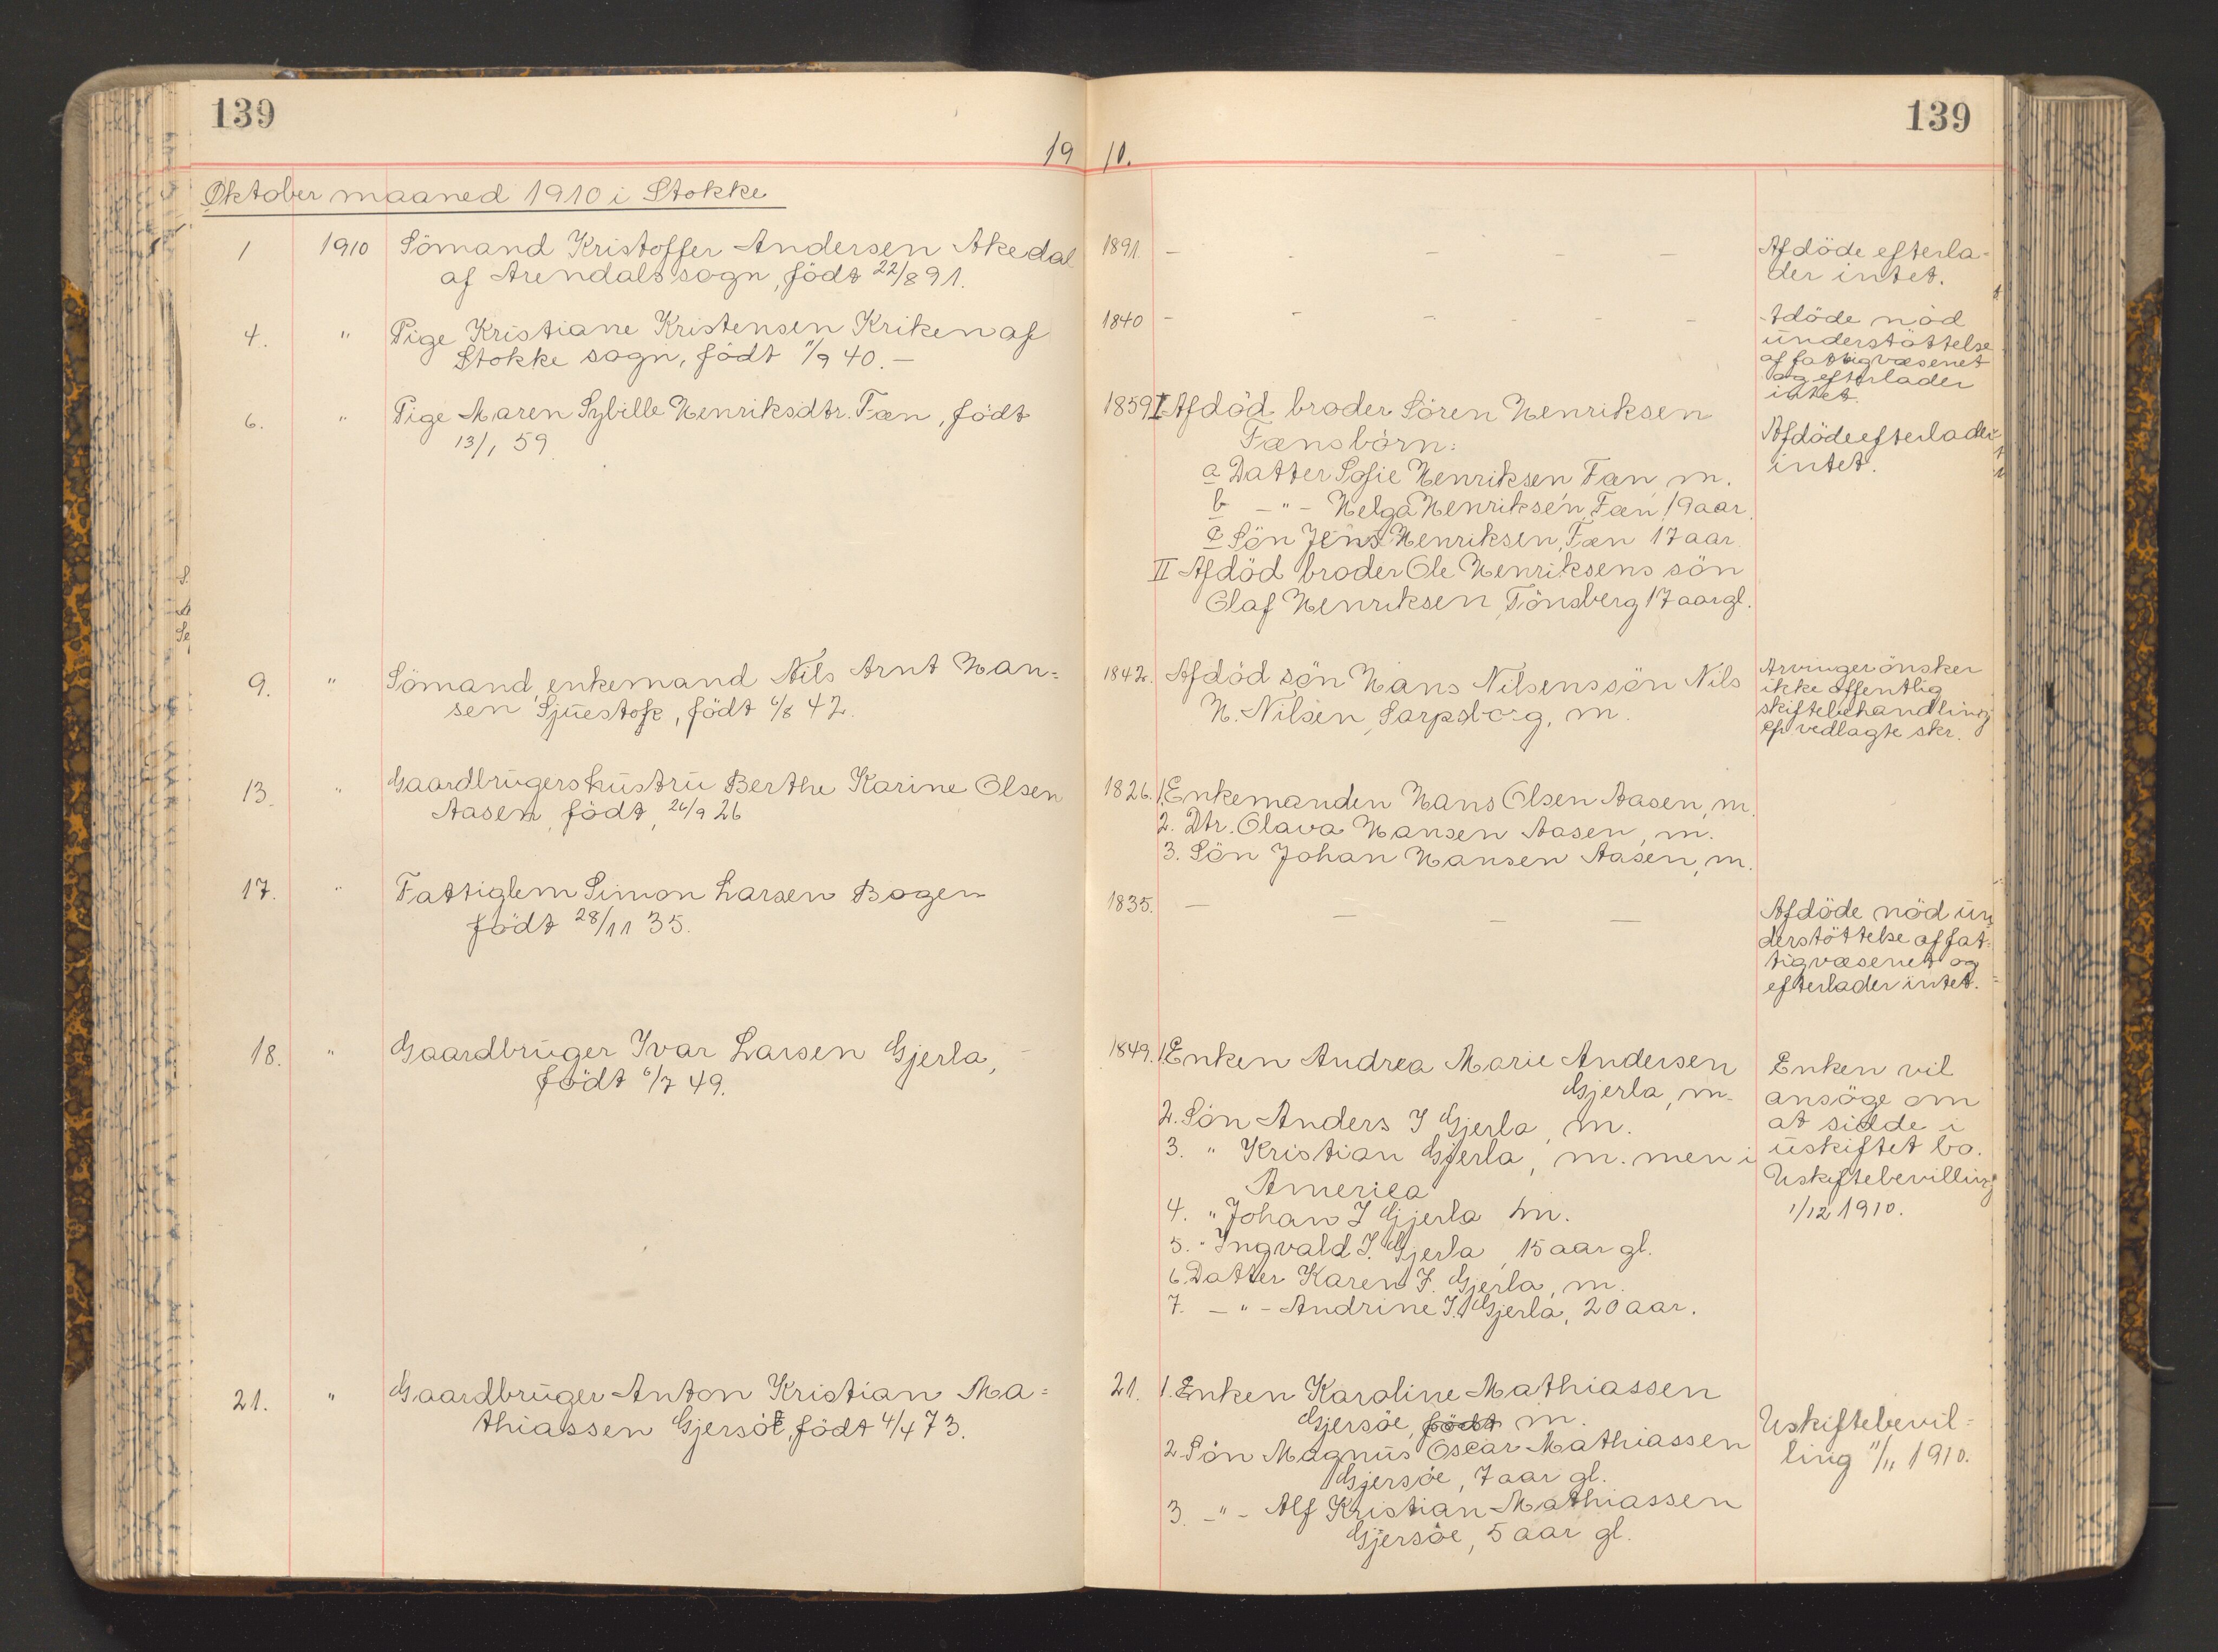 139
139
19 10.
Oktober maaned 1910 i Stokke
1 1910 Sömand Kristoffer Andersen Akedal
af Arendals sogn, födt 22/8 91.
1891. - - - - -
Afdöde efterla-
der intet.
4. " Pige Kristiane Kristensen Kriken af
Stokke sogn, födt 11/9 40. -
1840 - - - - - -
Adöde nöd
understöttelse
af fattigvæsenet
og efterlader
intet.
6. " Pige Maren Sybille Henriksdtr. Fæn, födt
13/1 59
1859 I Afdöd broder Sören Henriksen
Fæns börn:
a Datter Sofie Henriksen Fæn, m.
b - " - Helga Henriksen, Fæn, 19 aar.
c Sön Jens Henriksen, Fæn 17 aar.
II Afdöd broder Ole Henriksens sön
Olaf Henriksen, Tönsberg 17 aar gl.
Afdöde efterlader
intet.
9. " Sömand, enkemand Nils Arnt Han=
sen Sjuestok, födt 6/8 42.
1842. Afdöd sön Hans Nilsens sön Nils
H. Nilsen, Sarpsborg, m.
Arvinger önsker
ikke offentlig
skiftebehandling
efr vedlagte skr.
13. " Gaardbrugers hustru Berthe Karine Olsen
Aasen, födt, 26/9 26
1826. 1. Enkemanden Hans Olsen Aasen, m.
2. Dtr. Olava Hansen Aasen, m.
3. Sön Johan Hansen Aasen, m.
17. " Fattiglem Simon Larsen Bogen
födt 28/11 35.
1835. - - - -
Afdöde nöd un=
derstöttelse af fat=
tigvæsenet og
efterlader intet.
18. " Gaardbruger Ivar Larsen Gjerla,
födt 6/7 49.
1849. 1. Enken Andrea Marie Andersen
Gjerla, m.
2. Sön Anders I Gjerla, m.
3. " Kristian Gjerla, m. men i
America
4. " Johan I Gjerla m.
5. " Ingvald I. Gjerla, 15 aar gl.
6. Datter Karen I. Gjerla, m.
7. - " - Andrine I. Gjerla, 20 aar.
Enken vil
ansöge om
at sidde i
uskiftet bo.
Uskiftebevilling
1/12 1910.
21. " Gaardbruger Anton Kristian Ma=
thiassen Gjersöe, födt 4/4 73.
21. 1. Enken Karoline Mathiassen
Gjersöe, födt m.
2. Sön Magnus Oscar Mathiassen
Gjersöe, 7 aar gl.
3. - " - Alf Kristian Mathiassen
Gjersöe, 5 aar gl.
Uskiftebevil=
ling 11/11 1910.